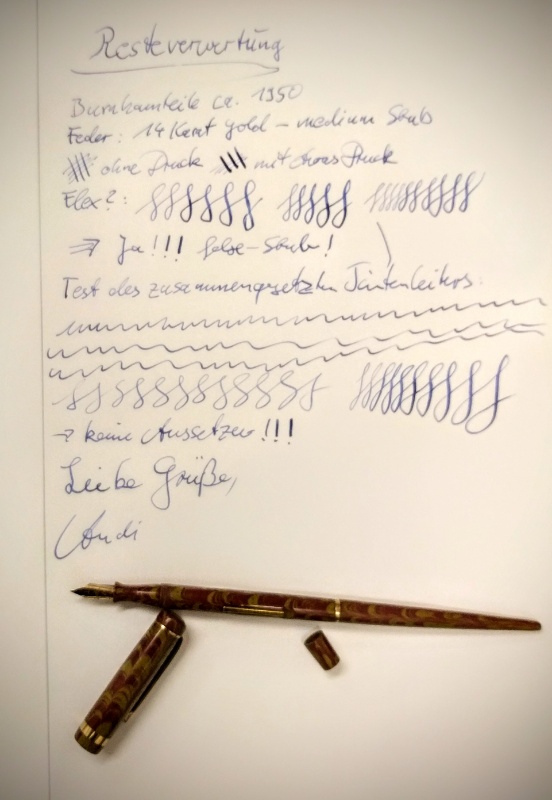 Resteverwertung
Burnhamteile ca. 1950
Feder: 14 Karat gold - medium Stub
ohne Druck mit etwas Druck
Flex?:
⇒ Ja!!! false-Stub!
Test des zusammengesetzten Tintenleiters:
→ keine Aussetzer!!!
Liebe Grüße,
Andi